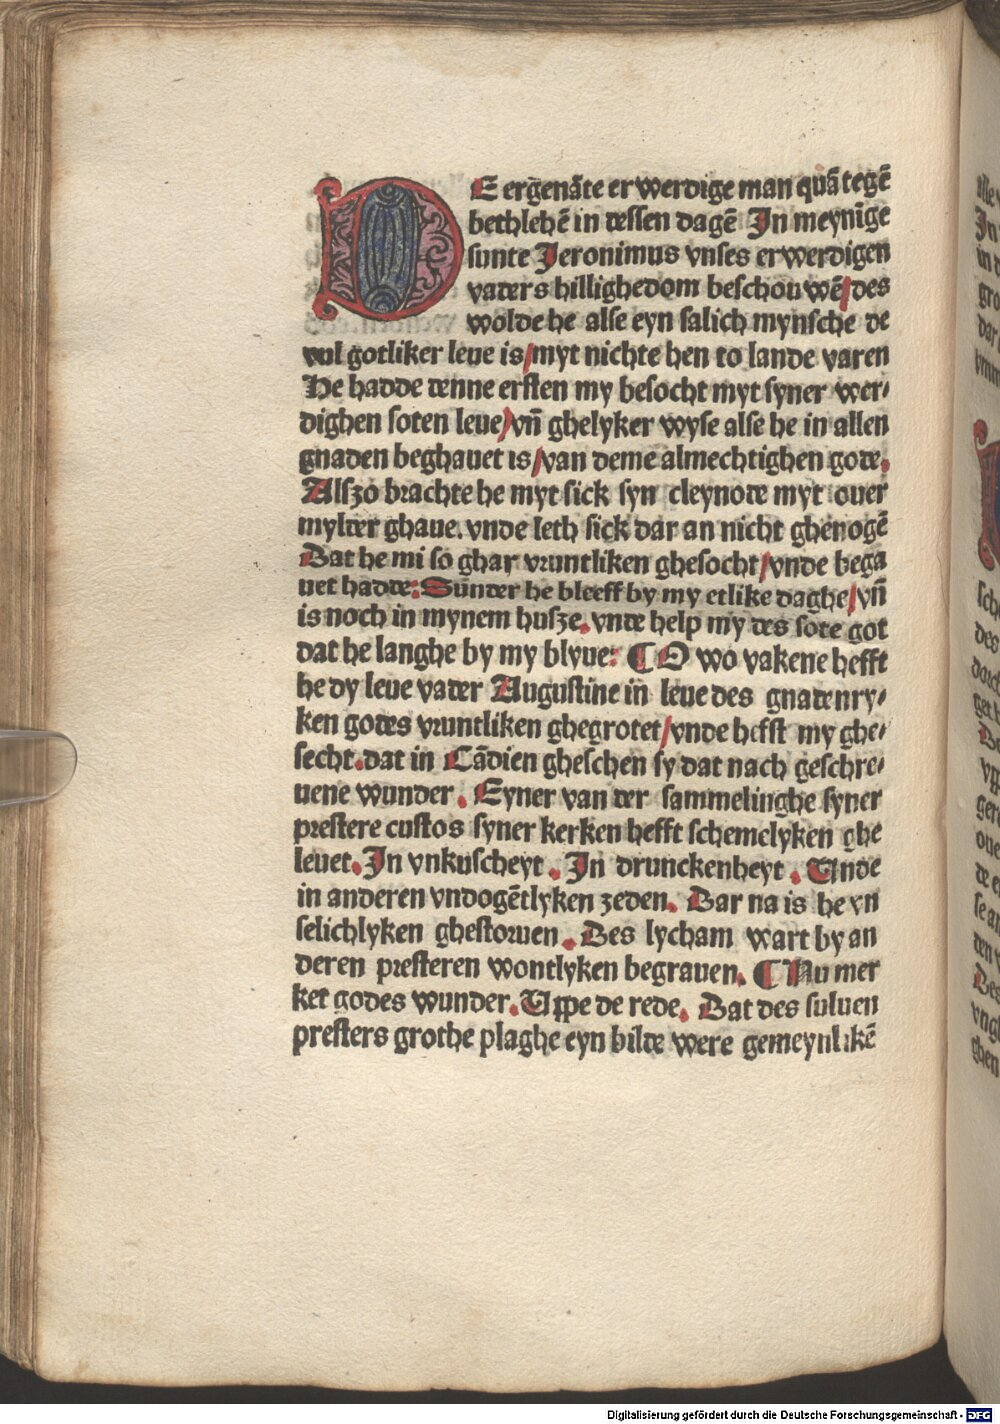 DE ergenāte er werdige man quā tegē
bethlehē in dessen dagē In meynīge
sunte Jeronimus vnses er werdigen
vaders hillighedom beschouwē/des
wolde he alse eyn salich mynsche de
vul gotliker leue is/myt nichte hen to lande varen
He hadde denne ersten my besocht myt syner wer⸗
dighen soten leue/vn̄ ghelyker wyse alse he in allen
gnaden beghauet is/van deme almechtighen gode.
Alszo brachte he myt sick syn cleynode myt ouer
mylder ghaue. vnde leth sick dar an nicht ghenogē
Dat he mi so ghar vruntliken ghesocht/vnde bega
uet hadde: Sunder he bleeff by my etlike daghe/vn̄
is noch in mynem husze. vnde help my des sote got
dat he langhe by my blyue: ¶ O wo vakene hefft
he dy leue vader Augustine in leue des gnadenry⸗
ken godes vruntliken ghegrotet/vnde hefft my ghe⸗
secht. dat in Cādien gheschen sy dat nach geschre⸗
uene wunder. Eyner van der sammelinghe syner
prestere custos syner kerken hefft schemelyken ghe
leuet. In vnkuscheyt. In drunckenheyt. Vnde
in anderen vndogētlyken zeden. Dar na is he vn
selichlyken ghestoruen. Des lycham wart by an
deren presteren wontlyken begrauen. ¶ Nu mer
ket godes wunder. Vppe de rede. Dat des suluen
presters grothe plaghe eyn bilde were gemeynlikē
Digitalisierung gefördert durch die Deutsche Forschungsgemeinschaft - DFG